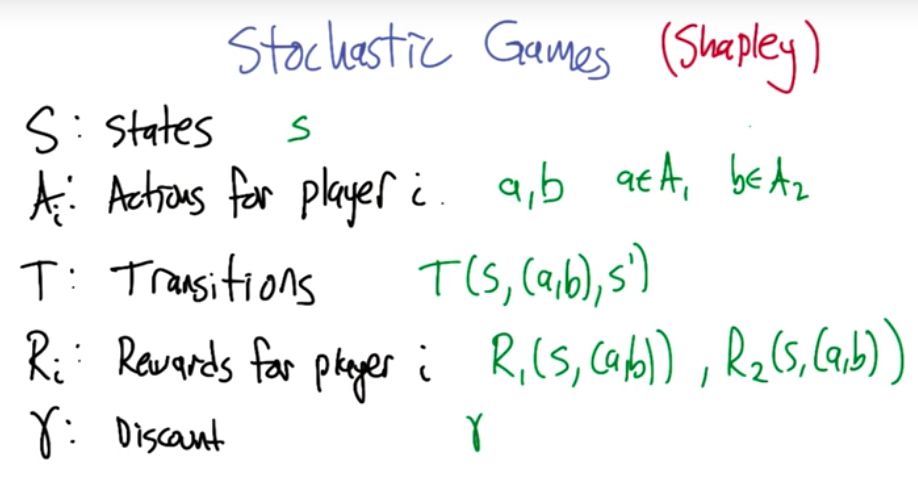 Stochastic Games (Shapley)
S: States s
Aᵢ: Actions for player i. a,b a∈A₁ b∈A₂
T: Transitions T(s,(a,b),s')
Rᵢ: Rewards for player i R₁(s,(a,b)), R₂(s,(a,b))
γ: Discount γ